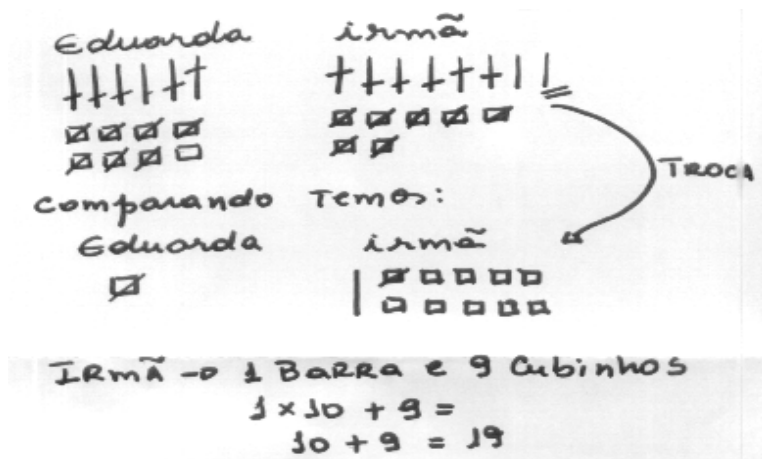 Eduarda irmã
TROCA
comparando Temos:
Eduarda irmã
IRmÃ → 1 BaRRa e 9 Cubinhos
1 × 10 + 9 =
10 + 9 = 19